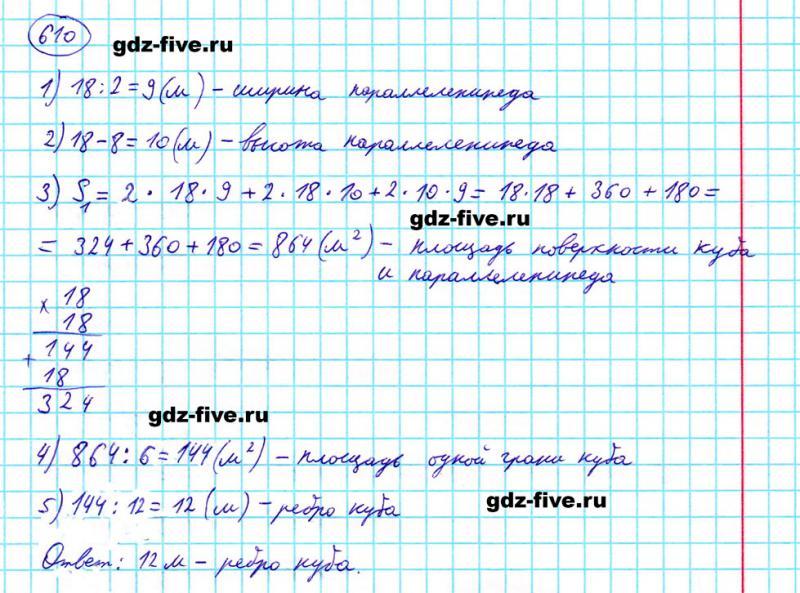 610
gdz-five.ru
1) 18 : 2 = 9 (м) – ширина параллелепипеда
2) 18 – 8 = 10 (м) – высота параллелепипеда
3) S₁ = 2 · 18 · 9 + 2 · 18 · 10 + 2 · 10 · 9 = 18 · 18 + 360 + 180 =
gdz-five.ru
= 324 + 360 + 180 = 864 (м²) – площадь поверхности куба
и параллелепипеда
× 18
18
+ 144
18
324
gdz-five.ru
4) 864 : 6 = 144 (м²) – площадь одной грани куба
5) 144 : 12 = 12 (м) – ребро куба
gdz-five.ru
Ответ: 12 м – ребро куба.